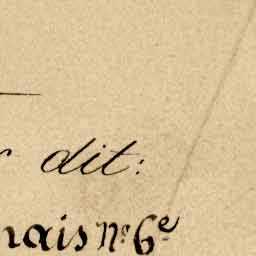 dit:
nais nº 6e